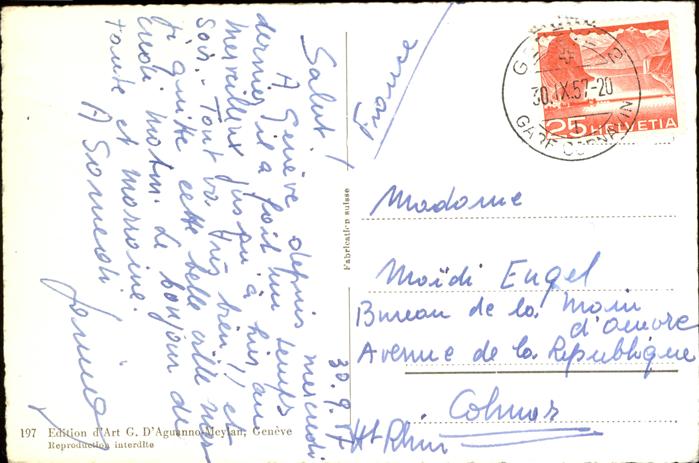 Salut!
A Genève depuis mercredi
dernier il a fait un temps
merveilleux jusqu'à hier au
soir. Tout va très bien!! et
je quitte cette belle ville mer-
credi matin. Le bonjour de
tante et marraine.
A Samedi
30.9.57
France
GENÈVE 2
30.IX.57-20
GARE CORNAVIN
25 HELVETIA
Fabrication suisse
Madame
Maïdi Engel
Bureau de la Main
d'oeuvre
Avenue de la République
Colmar
Ht Rhin
197 Edition d'Art G. D'Aguanno-Meylan, Genève
Reproduction interdite